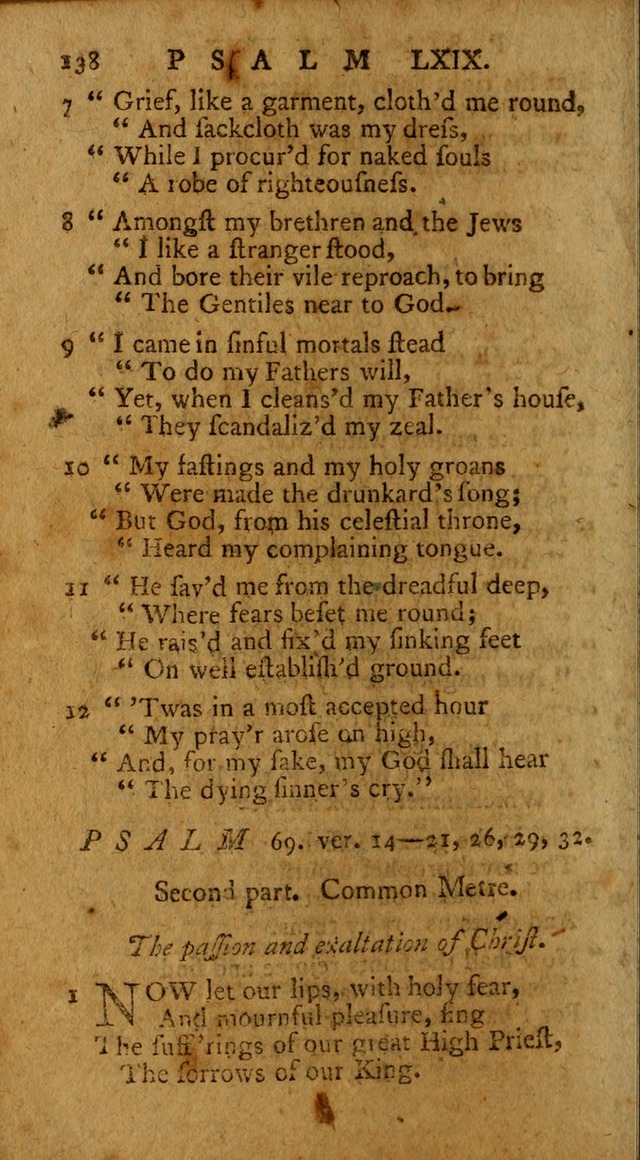 138 P S A L M LXIX.
7 “ Grief, like a garment, cloth'd me round,
“ And ſackcloth was my dreſs,
“ While I procur'd for naked ſouls
“ A robe of righteouſneſs.
8 “ Amongſt my brethren and the Jews
“ I like a ſtranger ſtood,
“ And bore their vile reproach, to bring
“ The Gentiles near to God.
9 “ I came in ſinful mortals ſtead
“ To do my Fathers will,
“ Yet, when I cleans'd my Father's houſe,
“ They ſcandaliz'd my zeal.
10 “ My faſtings and my holy groans
“ Were made the drunkard's ſong;
“ But God, from his celeſtial throne,
“ Heard my complaining tongue.
11 “ He ſav'd me from the dreadful deep,
“ Where fears beſet me round;
“ He rais'd and fix'd my ſinking feet
“ On well eſtabliſh'd ground.
12 “ 'Twas in a moſt accepted hour
“ My pray'r aroſe on high,
“ And, for my ſake, my God ſhall hear
“ The dying ſinner's cry.”
P S A L M 69. ver. 14—21, 26, 29, 32.
Second part. Common Metre.
The paſſion and exaltation of Chriſt.
1 NOW let our lips, with holy fear,
And mournful pleaſure, ſing
The ſuff'rings of our great High Prieſt,
The ſorrows of our King.